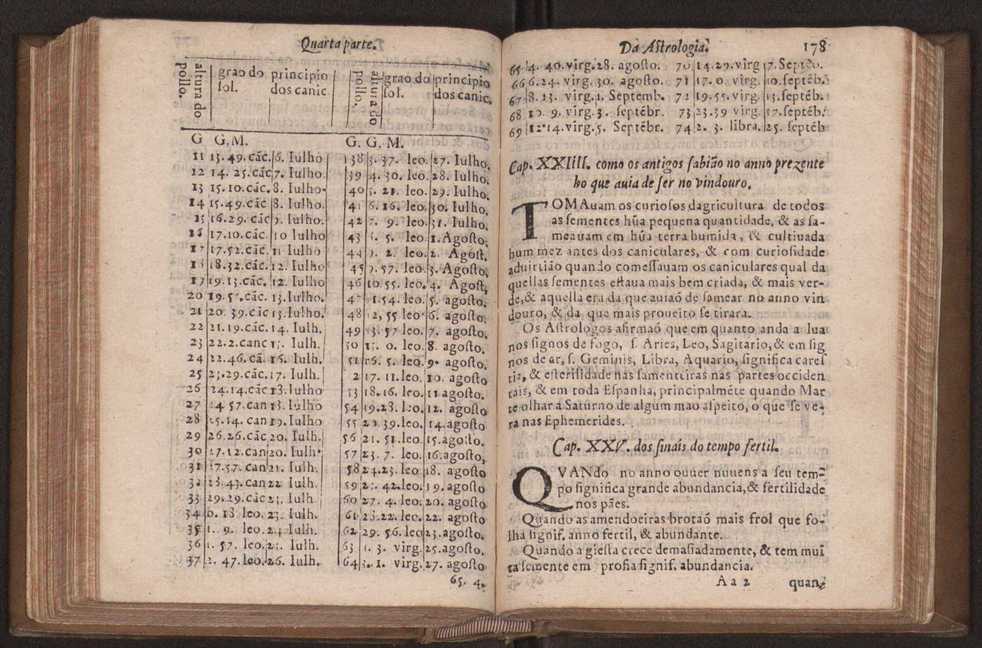 Quarta parte.
altura do pollo. grao do sol. principio dos canic.
altura do pollo. grao do sol. principio dos canic.
G G. M.
11 13. 49. cãc. 6. Iulho
12 14. 25. cãc 7. Iulho.
13 15. 10. cãc. 8. Iulho.
14 15. 49. cãc 8. Iulho.
15 16. 29. cãc 9. Iulho.
16 17. 10. cãc. 10 Iulho
17 17. 52. cãc. 11 Iulho
18. 32. cãc. 12. Iulho
19. 13. cãc. 12. Iulho
20 cãc. 13. Iulho.
21 20. 39. cãc 13. Iulho.
22 21. 19. cãc. 14. Iulh.
23 22. 2. canc Iulh.
24 46. cã. 16. Iulh.
25 29. cãc. 17. Iulh.
26 24. 14. cãc 18. Iulho
27 57. can 18. Iulho
28 14. can 19. Iulho
29 26. 26. cãc 20. Iulh.
30 27. 12. can 20. Iulh.
31 57. can 21. Iulh.
43. can 22 Iulh.
33 29. 29. cãc 23. Iulh.
34 0. 18 leo. Iulh.
35 1. 9. leo. Iulh.
36 57. leo. Iulh.
37 2. 47. leo. 26. Iulh.
G. G. M.
38 3. 37. leo. 27. Iulho.
39 4. 30. leo. 28. Iulho.
40 leo. 29. Iulho.
6. 16. leo. 30. Iulho.
42 7. 9. leo. 31. Iulho.
43 5. leo. 1. Agosto.
44 2. leo. 2. Agost.
45 57. leo. 3. Agosto.
46 10 55. leo. 4. Agost.
54. leo. 5. agosto.
48 55 leo 6. agosto.
49 57 leo. 7. agosto.
0. leo. 8. agosto.
5. leo. 9. agosto.
17. 11. leo. 10. agosto
18. 16. leo. 11. agosto
54 19. 28. leo. 12. agosto
55 39. leo. 14. agosto
56 21. 51. leo. 15. agosto.
57 23. 7. leo. 16. agosto.
58 24. 23. leo 18. agosto
59 42. leo. 19. agosto
60 27. 4. leo. 20. agosto
61 22. leo. 22. agosto
62 29. 56. leo 23. agosto.
63 1. 3. virg. 25. agosto.
64 1. virg. 27. agosto
65. 4.
Da Astrologia. 178
65 4. 40. virg. 28. agosto. 70 14. 29. virg 7. Septẽo.
66 6. 24. virg. 30. agosto. 71 17. 0. virg. 10. septẽb.
67 8. 13. virg. 1. Septemb. 72 19. 55. virg. 13. septẽb.
68 10. 9. virg. 3. septẽbr. 73 23. 39 virg. 17. septẽb.
69 12. 14. virg. 5. Septẽbr. 74 2. 3. libra. 25. septẽb
Cap. XXIIII. como os antigos sabião no anno prezente
ho que auia de ser no vindouro.
TOMAuam os curiosos dagricultura de todos
as sementes hũa pequena quantidade, & as sa-
meauam em hũa terra humida, & cultivada
hum mez antes dos caniculares, & com curiosidade
aduirtião quando comessauam os caniculares qual da
quellas sementes estaua mais bem criada, & mais ver-
de, & aquella era da que auiaõ de samear no anno vin
douro, & da que mais proueito se tirara.
Os Astrologos afirmaõ que em quanto anda a lua
nos signos de fogo, s. Aries, Leo, Sagitario, & em sig
nos de ar, s. Geminis, Libra, Aquario, significa cares
tia, & esterilidade nas samenteiras nas partes occiden
tais, & em toda Espanha, principalmẽte quando Mar
te olhar a Saturno de algum mao aspeito, o que se ve-
ra nas Ephemerides.
Cap. XXV. dos sinais do tempo fertil.
QVANdo no anno ouuer nuuens a seu tem-
po significa grande abundancia, & fertilidade
nos pães.
Quando as amendoeiras brotaõ mais frol que fo-
lha signif. anno fertil, & abundante.
Quando a giesta crece demasiadamente, & tem mui
ta semente em profia signif. abundancia.
A a 2 quan